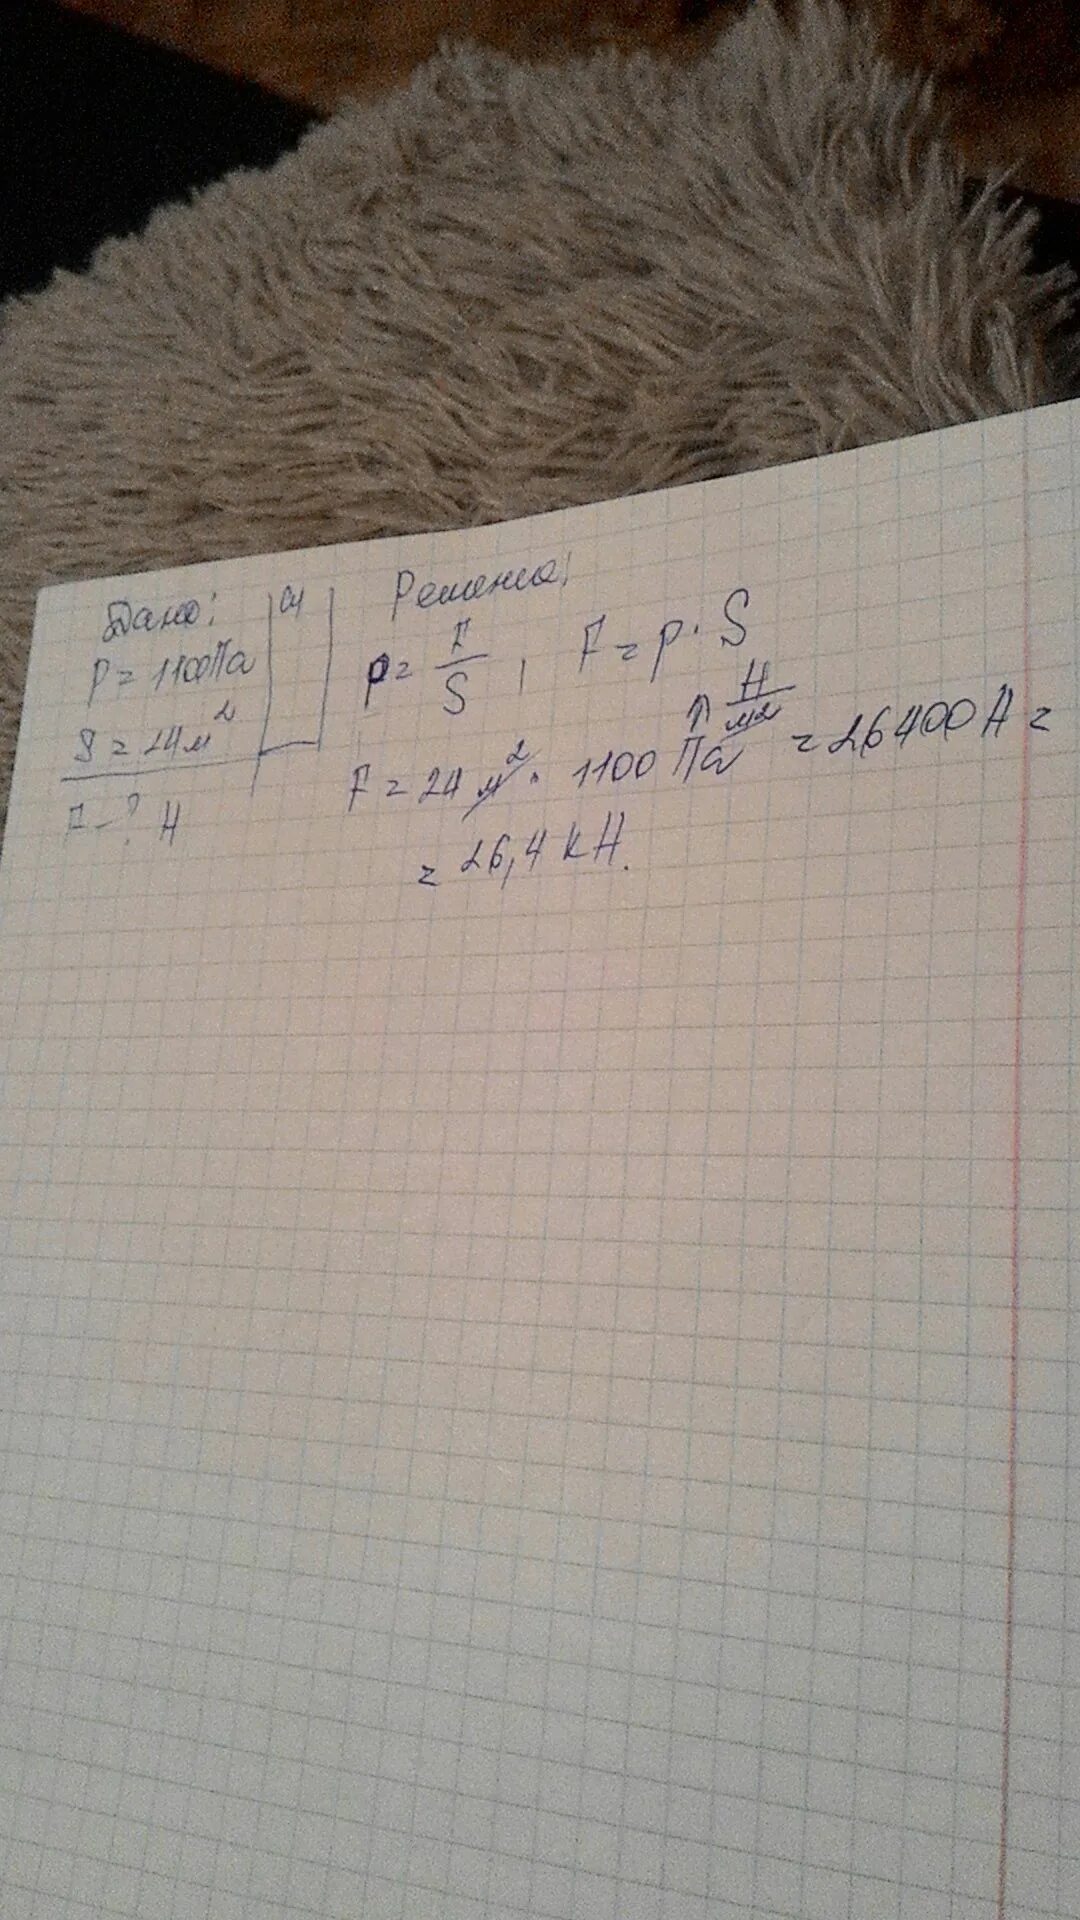 Дано:
P = 1100Па
S = 24м²
F - ? Н
СИ
Решение:
p = F/S , F = p · S
F = 24 м² · 1100 Па Н/м² = 26400 Н =
= 26,4 кН.